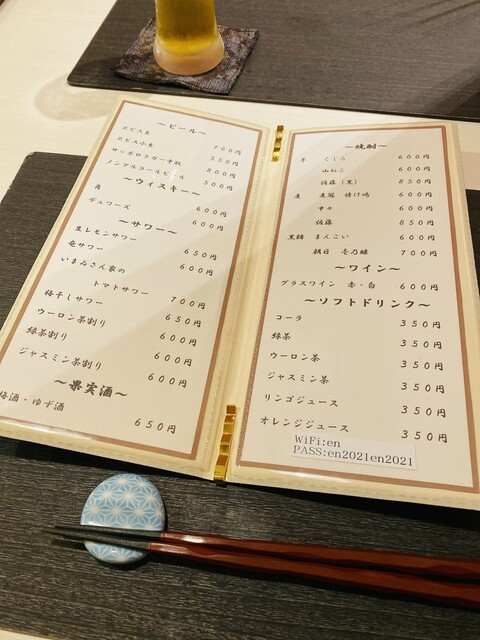 ～ビール～
ヱビス生 700円
ヱビス小生 550円
サッポロラガー中瓶 800円
ノンアルコールビール 500円
～ウイスキー～
角 600円
デュワーズ 600円
～サワー～
生レモンサワー 650円
竜サワー 600円
いまゐさん家の
トマトサワー 700円
梅干しサワー 650円
ウーロン茶割り 600円
緑茶割り 600円
ジャスミン茶割り 600円
～果実酒～
梅酒・ゆず酒 650円
～焼酎～
芋 くじら 600円
山ねこ 600円
佐藤（黒） 850円
麦 兼冠 情け嶋 600円
中々 600円
佐藤 850円
黒糖 まんこい 600円
朝日 壱乃醸 700円
～ワイン～
グラスワイン 赤・白 600円
～ソフトドリンク～
コーラ 350円
緑茶 350円
ウーロン茶 350円
ジャスミン茶 350円
リンゴジュース 350円
オレンジジュース 350円
WiFi:en
PASS:en2021en2021